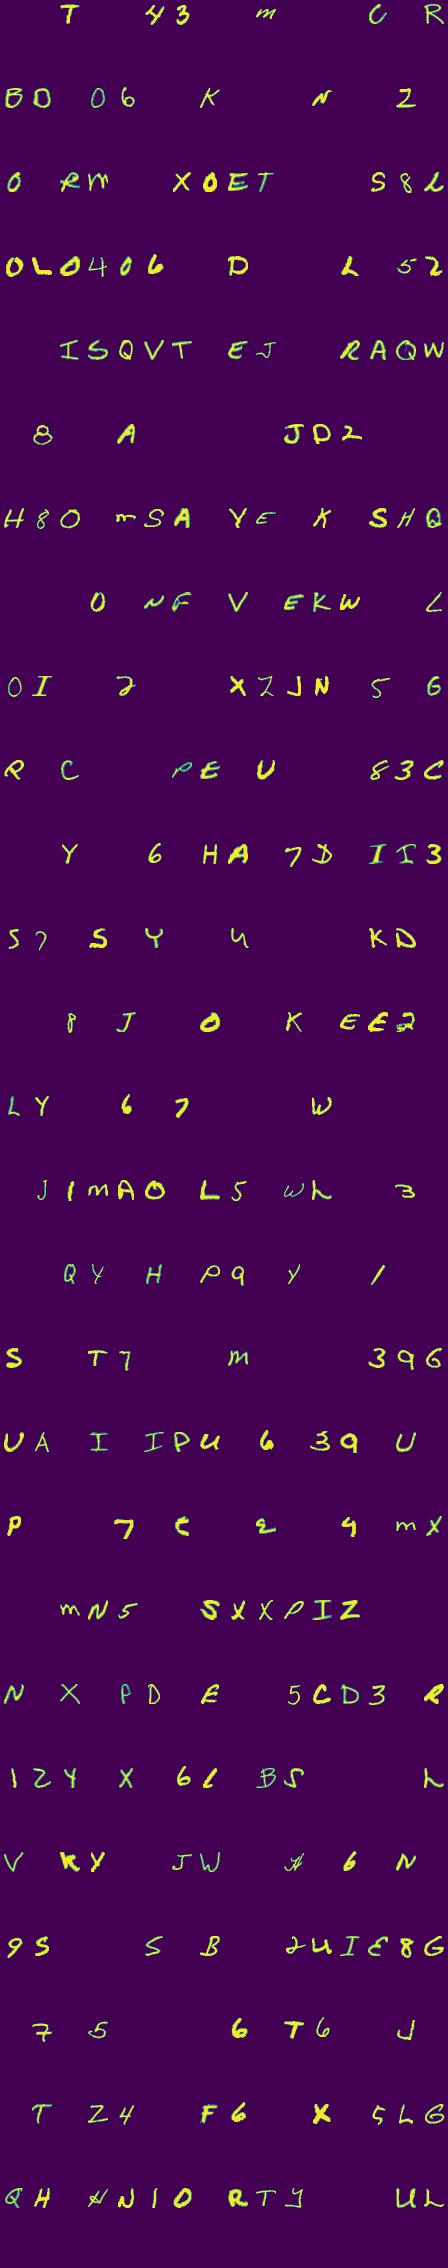 T 43 m C R
BD 06 K N Z
0 RM XOET S8L
OLO406 D L 52
ISQVT EJ RAQW
8 A JD2
H80 mSA YE K SHQ
0 NF V EKW L
0I 2 XZJN 5 G
R C PE U 83C
Y 6 HA 7D II3
57 S Y U KD
8 J 0 K EE2
LY 67 W
J1MAO L5 WL 3
QY H P9 Y 1
S T7 M 396
UA I IPU 6 39 U
P 7 C 2 4 MX
MN5 SXXPIZ
N X PD E 5CD3 R
1ZY X 6L BS L
V KY JW H 6 N
9S S B 2UIE8G
7 5 6 T6 J
T Z4 F6 X 5LG
QH HN10 RTY UL